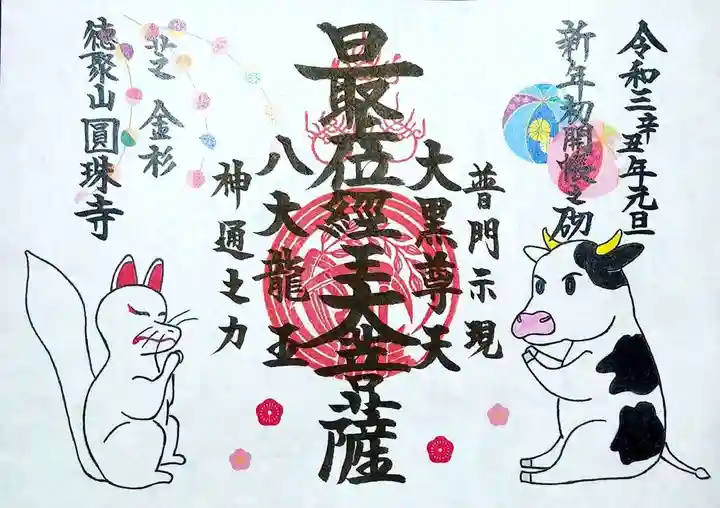 令和三辛丑年元旦
新年初開帳之砌
普門示現
大黒尊天
最位經王大菩薩
八大龍王
神通之力
芝金杉
徳聚山圓珠寺